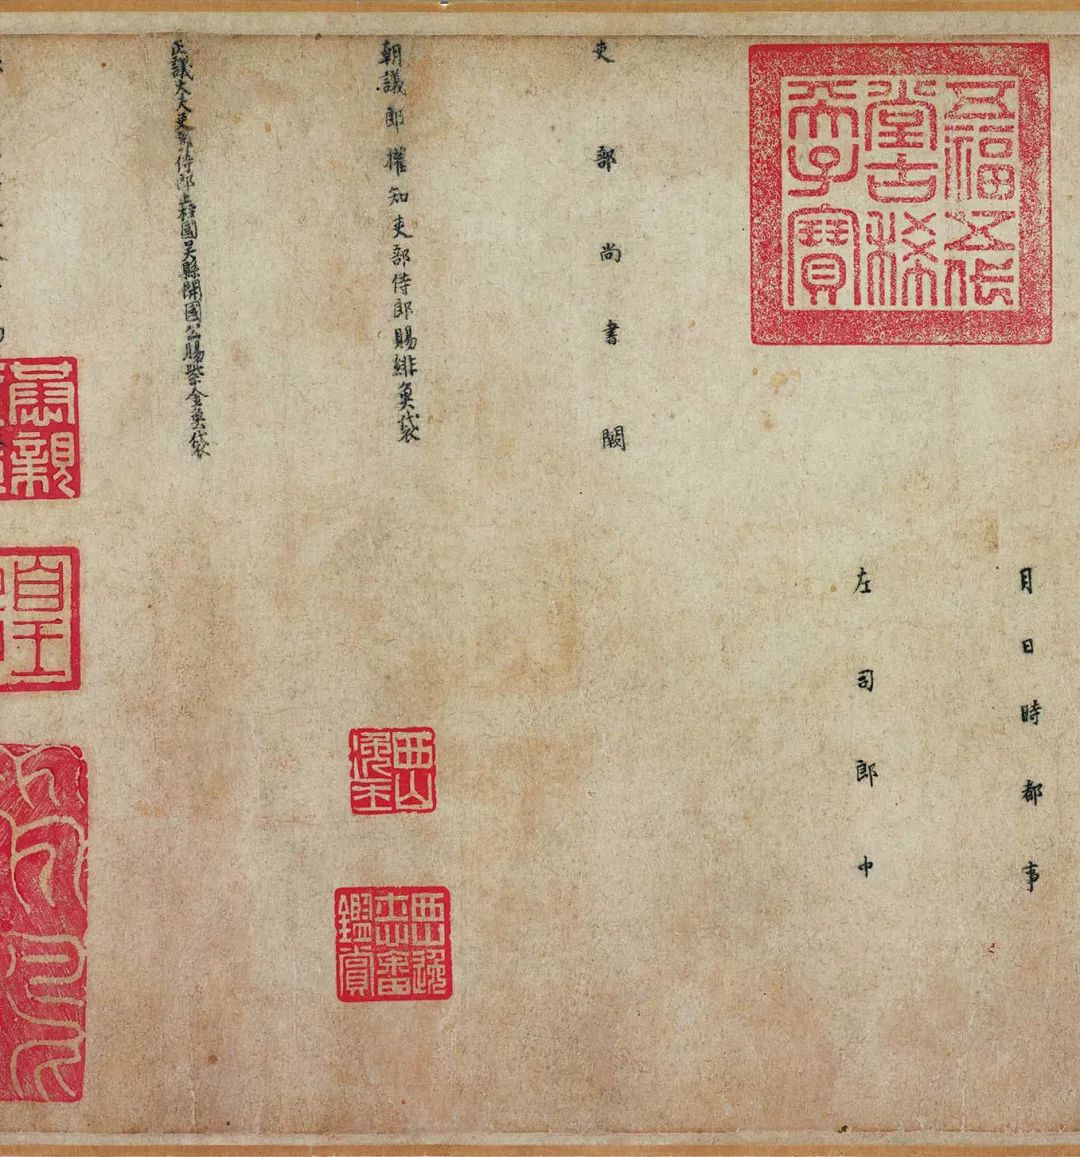 月日時都事
左司郎中
五福五代
堂古稀
天子寶
吏部尚書闕
朝議郎權知吏部侍郎賜緋魚袋
西山
逸士
鑑賞
正議大夫吏部侍郎上柱國吳縣開國公賜紫金魚袋
肅親
皇